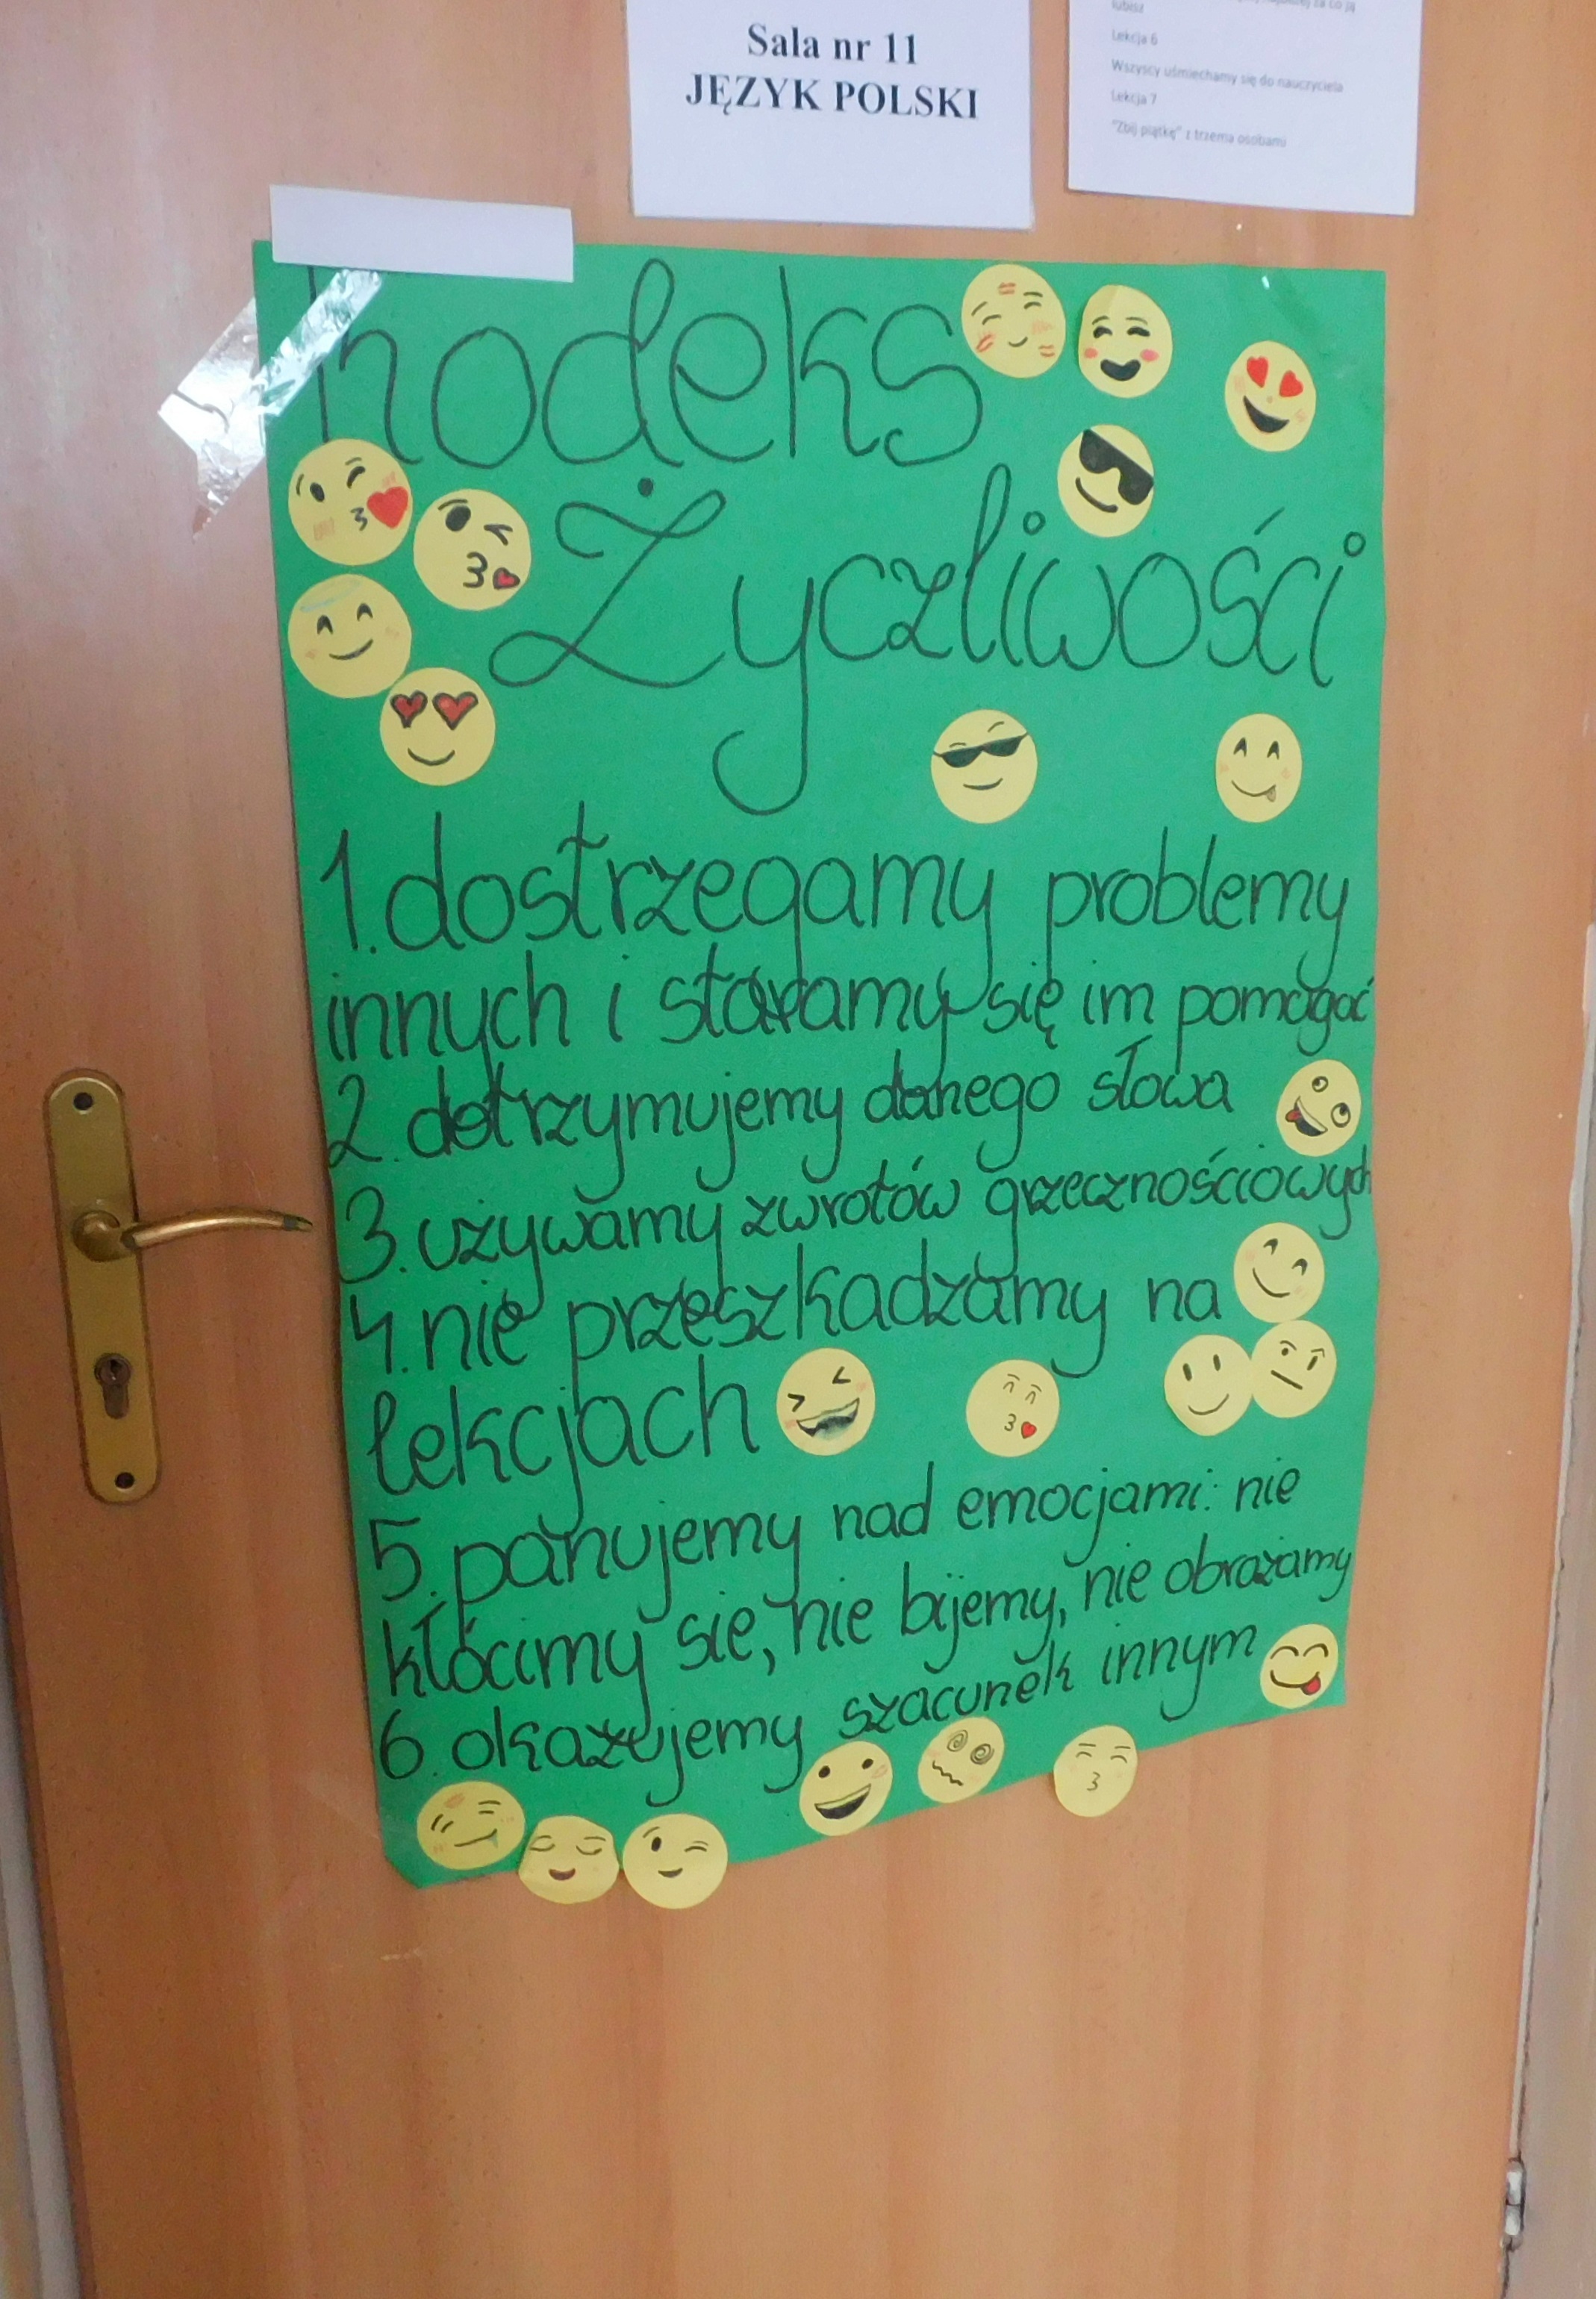 Sala nr 11
JĘZYK POLSKI
za co ją
lubisz
Lekcja 6
Wszyscy uśmiechamy się do nauczyciela
Lekcja 7
"Zbij piątkę" z trzema osobami
Kodeks
Życzliwości
1. dostrzegamy problemy
innych i staramy się im pomagać
2. dotrzymujemy danego słowa
3. używamy zwrotów grzecznościowych
4. nie przeszkadzamy na
lekcjach
5. panujemy nad emocjami: nie
kłócimy sie, nie bijemy, nie obrażamy
6. okazujemy szacunek innym